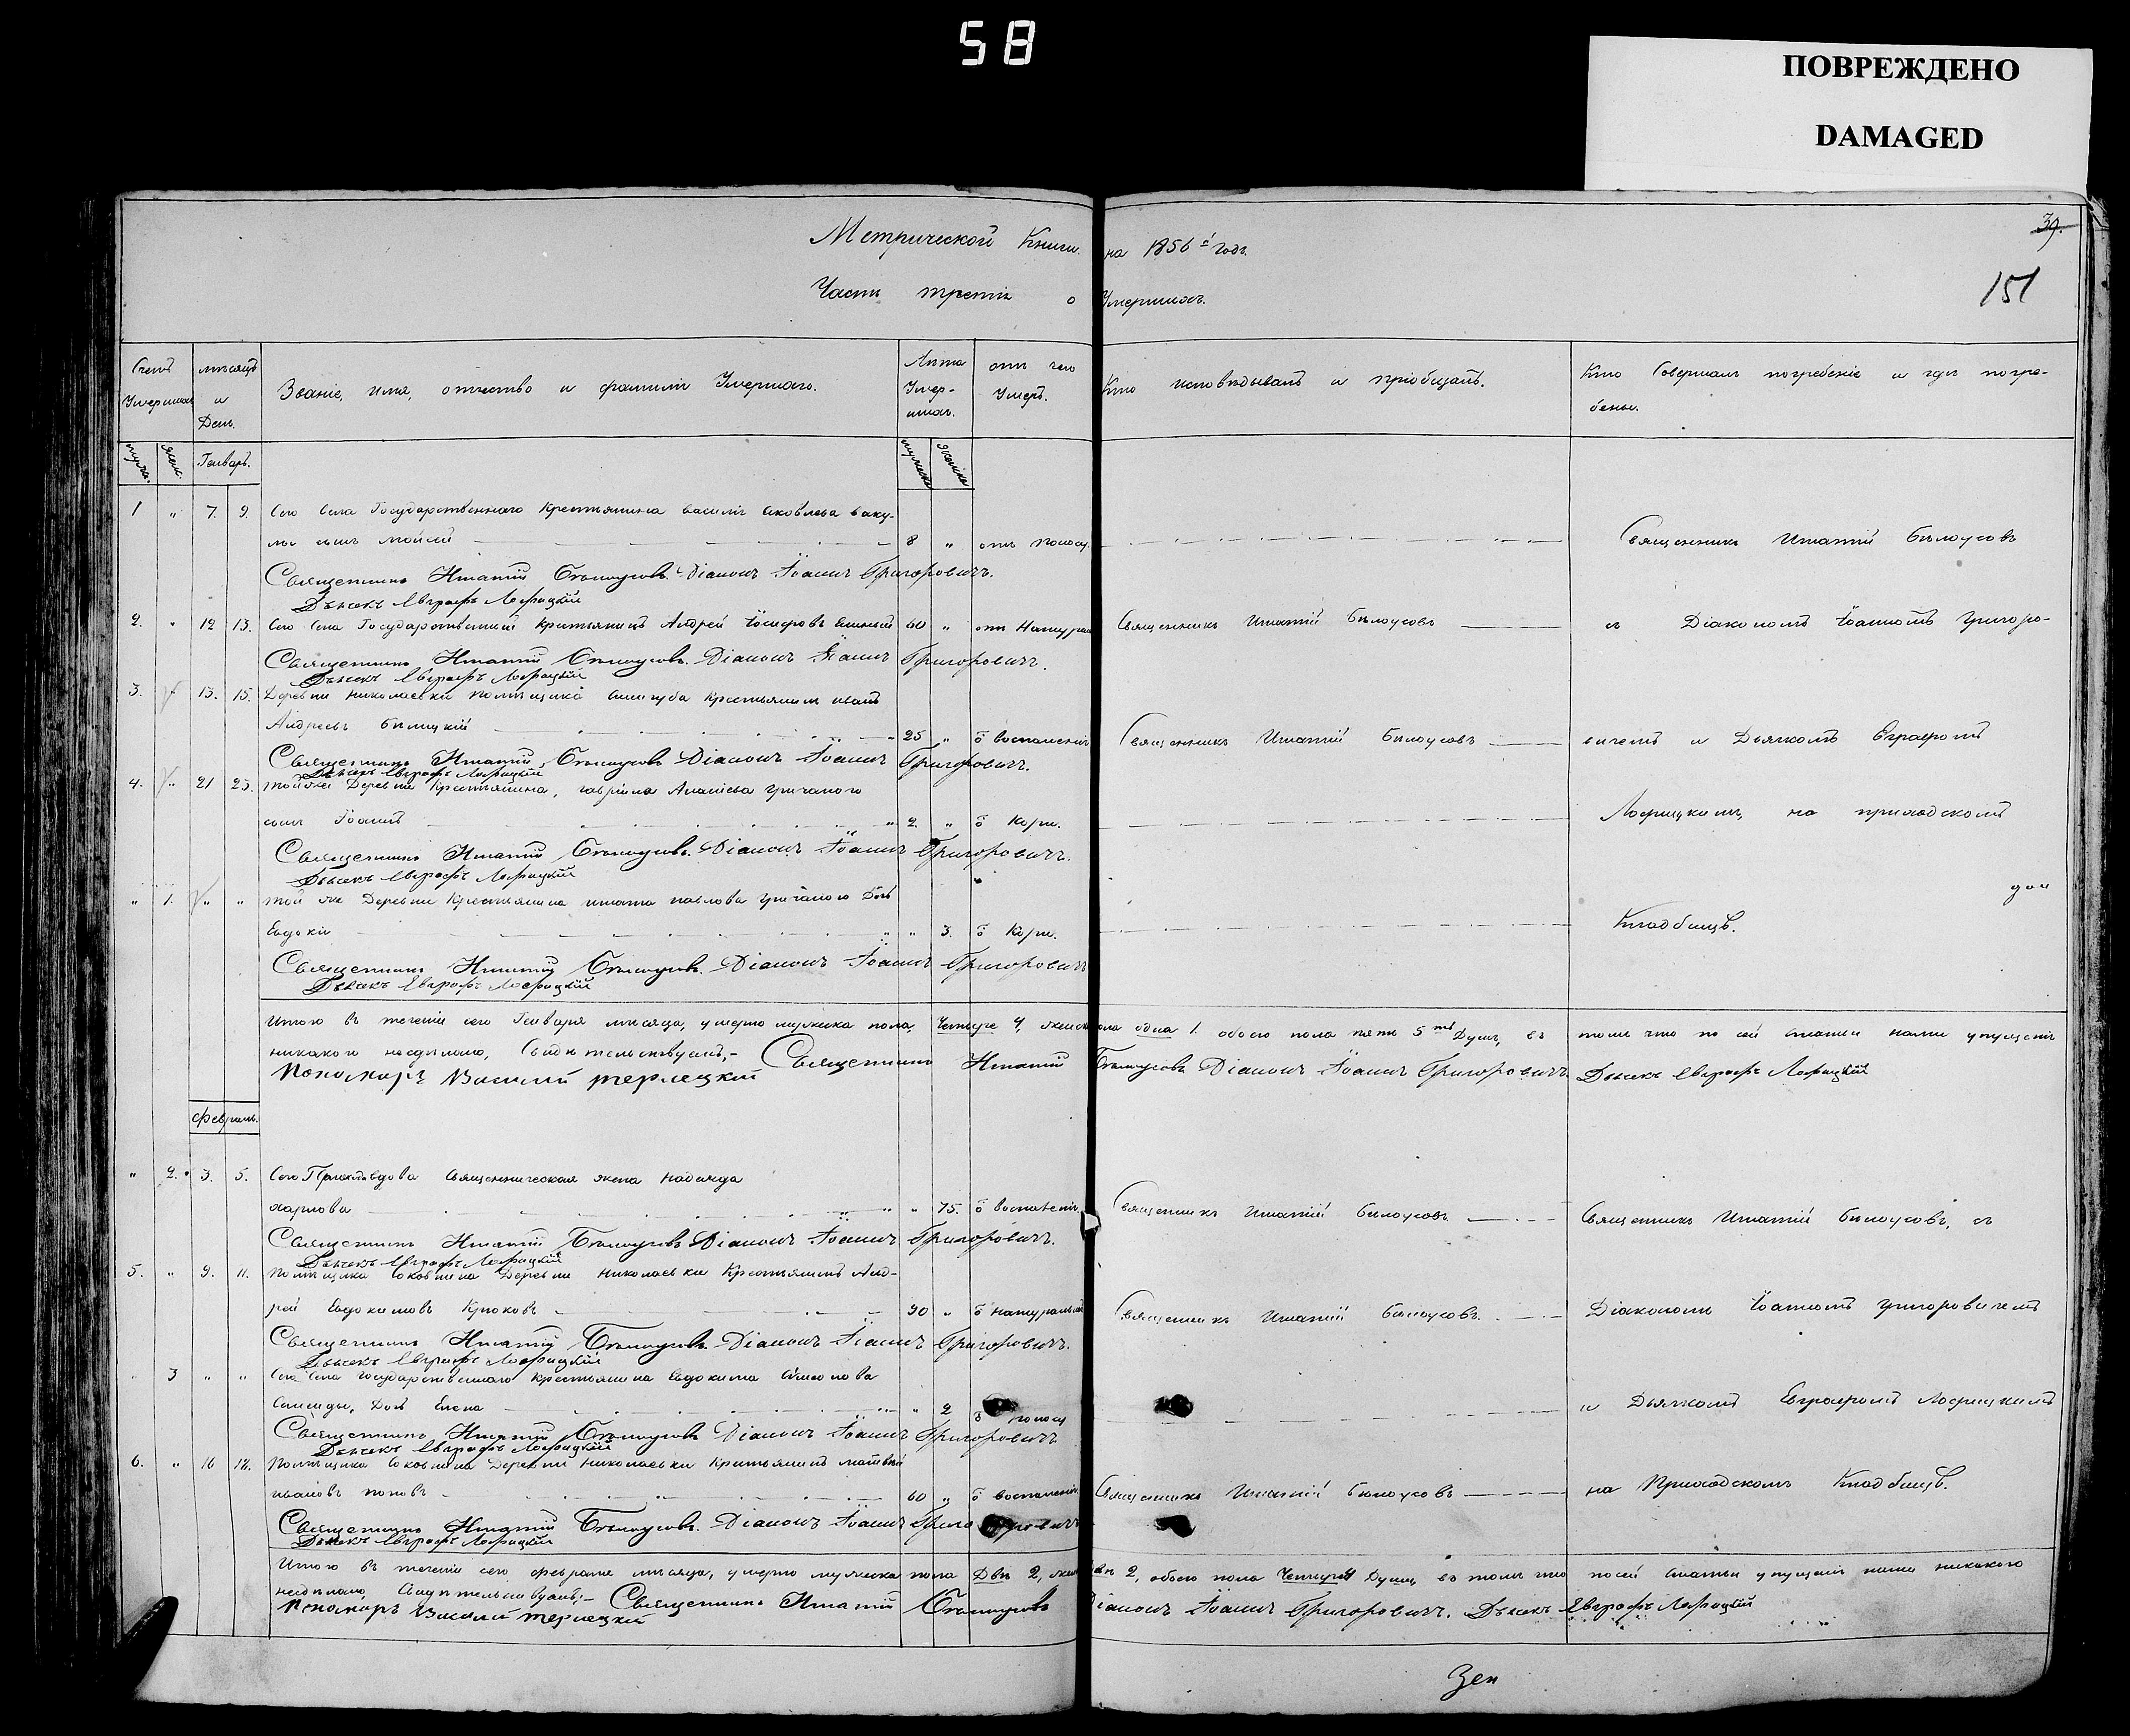 58
ПОВРЕЖДЕНО
DAMAGED
39.
151
Метрической Книги на 1856й Годъ.
Часть третія о Умершихъ.
Счетъ Умершихъ
мѣсяцъ и День.
Званіе, имя, отчество и фамилія Умершаго.
Лѣта Умер-шихъ.
отъ чего Умеръ.
Кто исповѣдывалъ и пріобщалъ.
Кто Совершалъ погребеніе и гдѣ погре-
бены.
Генварь.
1 " 7. 9. Сего Села Государственнаго Крестьянина Василія Яковлева Ваку-
лы сынъ Мойсей 8 " отъ поносу.
Священникъ Игнатій Бѣлоусовъ
Священникъ Игнатій Бѣлоусовъ. Діаконъ Іоаннъ Григоровичъ.
Дьячекъ Евграфъ Лофицкій
2. " 12 13. Сего Села Государственный крестьянинъ Андрей Іосифовъ 60 " отъ Натурал
Священникъ Игнатій Бѣлоусовъ
съ Діакономъ Іоанномъ Григоро-
Священникъ Игнатій Бѣлоусовъ. Діаконъ Іоаннъ Григоровичъ.
Дьячекъ Евграфъ Лофицкій
3. " 13. 15. Деревни Николаевки помѣщика Крестьянинъ Иванъ
Андреевъ Билицкій 25 " ѿ воспаленія
Священникъ Игнатій Бѣлоусовъ
вичемъ и Дьячкомъ Евграфомъ
Священникъ Игнатій Бѣлоусовъ Діаконъ Іоаннъ Григоровичъ.
Дьячекъ Евграфъ Лофицкій
4. " 21 23. той же Деревни Крестьянина, Гавріила Ананіева
сынъ Іоаннъ " 2. " ѿ Кори.
Лофицкимъ, на приходскомъ
Священникъ Игнатій Бѣлоусовъ. Діаконъ Іоаннъ Григоровичъ.
Дьячекъ Евграфъ Лофицкій
" 1. " " той же Деревни Крестьянина Игната Павлова Дочь
Евдокія " " 3. ѿ Кори.
Кладбищѣ.
Священникъ Игнатій Бѣлоусовъ. Діаконъ Іоаннъ Григоровичъ
Дьячекъ Евграфъ Лофицкій
Итого въ теченіи сего Генваря мѣсяца, умерло мужеска пола, Четыре 4, женск пола одна 1. обоего пола пять 5ть Душъ, въ томъ что по сей статьи нами упущенія
никакого несдѣлано, Свидѣтельствуемъ,- Священникъ Игнатій Бѣлоусовъ Діаконъ Іоаннъ Григоровичъ. Дьячекъ Евграфъ Лофицкій
Пономарь Василій Терлецкій
февраль.
" 2. 3. 5. Сего Прихода вдова Священническая жена Надежда
Карпова " " 75. ѿ воспаленія
Священникъ Игнатій Бѣлоусовъ
Священникъ Игнатій Бѣлоусовъ, съ
Священникъ Игнатій Бѣлоусовъ Діаконъ Іоаннъ Григоровичъ.
Дьячекъ Евграфъ Лофицкій
5. " 9. 11. помѣщика Деревни Николаевки Крестьянинъ Анд-
рей Евдокимовъ Крюковъ 90 " ѿ натуральной
Священникъ Игнатій Бѣлоусовъ.
Діакономъ Іоанномъ Григоровичемъ
Священникъ Игнатій Бѣлоусовъ. Діаконъ Іоаннъ Григоровичъ.
Дьячекъ Евграфъ Лофицкій
" 3 " " Сего Села государственнаго крестьянина Евдокима
Дочь Елена " 2 ѿ поносу
и Дьячкомъ Евграфомъ Лофицкимъ
Священникъ Игнатій Бѣлоусовъ Діаконъ Іоаннъ Григоровичъ
Дьячекъ Евграфъ Лофицкій
6. " 16 18. помѣщика Деревни Николаевки Крестьянинъ Матвѣй
Ивановъ Поповъ 60 " ѿ воспаленія
Священникъ Игнатій Бѣлоусовъ
на Приходскомъ Кладбищѣ.
Священникъ Игнатій Бѣлоусовъ. Діаконъ Іоаннъ Григоровичъ
Дьячекъ Евграфъ Лофицкій
Итого въ теченіи сего февраля мѣсяца, умерло мужеска пола Двѣ 2, женск двѣ 2, обоего пола Четыре Душъ, въ томъ что посей статьи упущенія нами никакого
несдѣлано, Свидѣтельствуемъ;- Священникъ Игнатій Бѣлоусовъ Діаконъ Іоаннъ Григоровичъ. Дьячекъ Евграфъ Лофицкій
Пономарь Василій Терлецкій